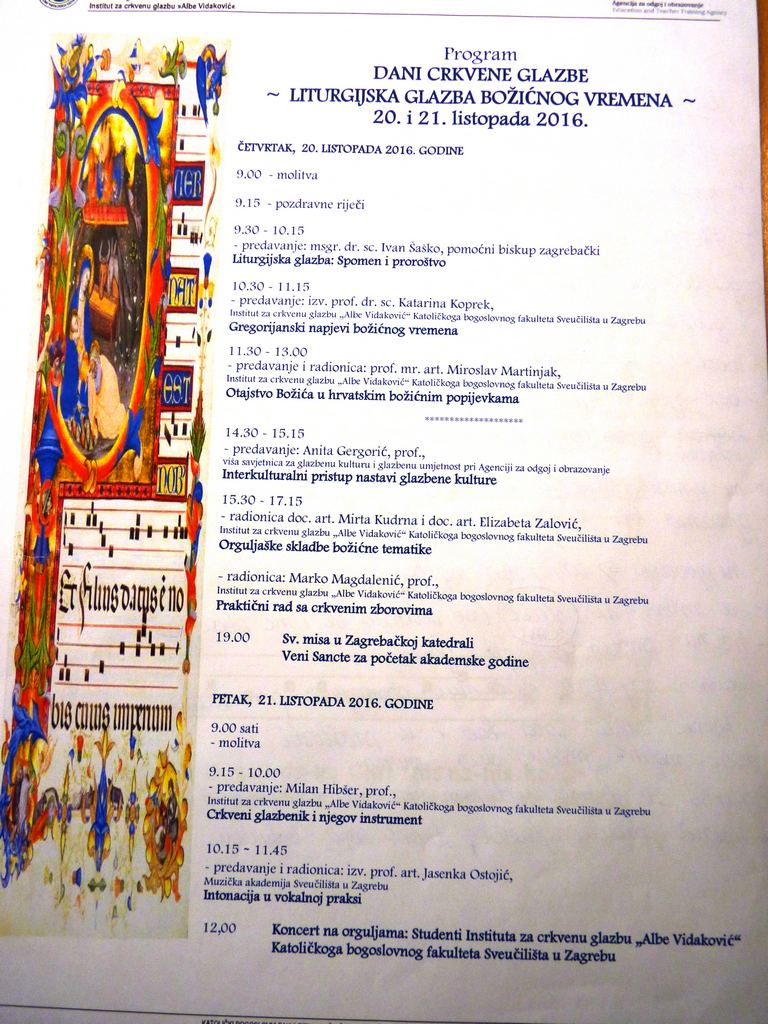 Institut za crkvenu glazbu »Albe Vidaković«
Agencija za odgoj i obrazovanje
Education and Teacher Training Agency
Program
DANI CRKVENE GLAZBE
~ LITURGIJSKA GLAZBA BOŽIĆNOG VREMENA ~
20. i 21. listopada 2016.
ČETVRTAK, 20. LISTOPADA 2016. GODINE
9.00 - molitva
9.15 - pozdravne riječi
9.30 - 10.15
- predavanje: msgr. dr. sc. Ivan Šaško, pomoćni biskup zagrebački
Liturgijska glazba: Spomen i proroštvo
10.30 - 11.15
- predavanje: izv. prof. dr. sc. Katarina Koprek,
Institut za crkvenu glazbu „Albe Vidaković“ Katoličkoga bogoslovnog fakulteta Sveučilišta u Zagrebu
Gregorijanski napjevi božićnog vremena
11.30 - 13.00
- predavanje i radionica: prof. mr. art. Miroslav Martinjak,
Institut za crkvenu glazbu „Albe Vidaković“ Katoličkoga bogoslovnog fakulteta Sveučilišta u Zagrebu
Otajstvo Božića u hrvatskim božićnim popijevkama
********************
14.30 - 15.15
- predavanje: Anita Gergorić, prof.,
viša savjetnica za glazbenu kulturu i glazbenu umjetnost pri Agenciji za odgoj i obrazovanje
Interkulturalni pristup nastavi glazbene kulture
15.30 - 17.15
- radionica doc. art. Mirta Kudrna i doc. art. Elizabeta Zalović,
Institut za crkvenu glazbu „Albe Vidaković“ Katoličkoga bogoslovnog fakulteta Sveučilišta u Zagrebu
Orguljaške skladbe božićne tematike
- radionica: Marko Magdalenić, prof.,
Institut za crkvenu glazbu „Albe Vidaković“ Katoličkoga bogoslovnog fakulteta Sveučilišta u Zagrebu
Praktični rad sa crkvenim zborovima
19.00 Sv. misa u Zagrebačkoj katedrali
Veni Sancte za početak akademske godine
PETAK, 21. LISTOPADA 2016. GODINE
9.00 sati
- molitva
9.15 - 10.00
- predavanje: Milan Hibšer, prof.,
Institut za crkvenu glazbu „Albe Vidaković“ Katoličkoga bogoslovnog fakulteta Sveučilišta u Zagrebu
Crkveni glazbenik i njegov instrument
10.15 ~ 11.45
- predavanje i radionica: izv. prof. art. Jasenka Ostojić,
Muzička akademija Sveučilišta u Zagrebu
Intonacija u vokalnoj praksi
12,00 Koncert na orguljama: Studenti Instituta za crkvenu glazbu „Albe Vidaković“
Katoličkoga bogoslovnog fakulteta Sveučilišta u Zagrebu
NAT
EST
NOB
Et filius datus é no
bis cuius imperium